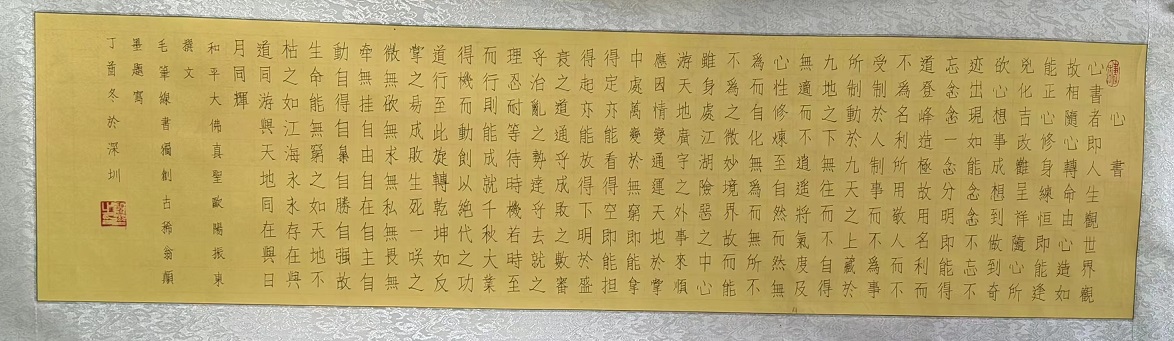 心書
心書者即人生觀世界觀
故相隨心轉命由心造如
能正心修身練恒即能逢
兇化吉改難呈祥隨心所
欲心想事成想到做到奇
迹出現如能念念不忘不
忘念念一念分明即能得
道登峰造極故用名利而
不為名利所用敬人而不
受制於人制事而不為事
所制動於九天之上藏於
九地之下無住而不自得
無適而不逍遙將氣度及
心性修煉至自然而然無
為而自化無為而無所不
不為之微妙境界故而能
雖身處江湖險惡之中心
游天地廣宇之外事來順
應因情變通運天地於掌
中處萬變於無窮即能拿
得定亦能看得空即能担
得起亦能放得下明於盛
衰之道通乎成敗之數審
乎治亂之勢達乎去就之
理忍耐等待時機若時至
而行則能成就千秋大業
得機而動創以絕代之功
道行至此旋轉乾坤如反
掌之易成敗生死一咲之
微無欲無求無私無畏無
牽無挂自由自在自主自
動自得自巢自勝自强故
生命能無窮之如天地不
枯之如江海永永存在與
道同游與天地同在與日
月同輝
和平大佛真聖歐陽振東
撰文
毛筆線書獨創古稀翁顯
墨題寫
丁酉冬於深圳